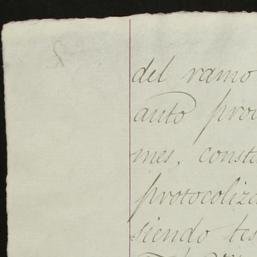 del ramo
auto prov
mes, const
protocoliza
siendo tes